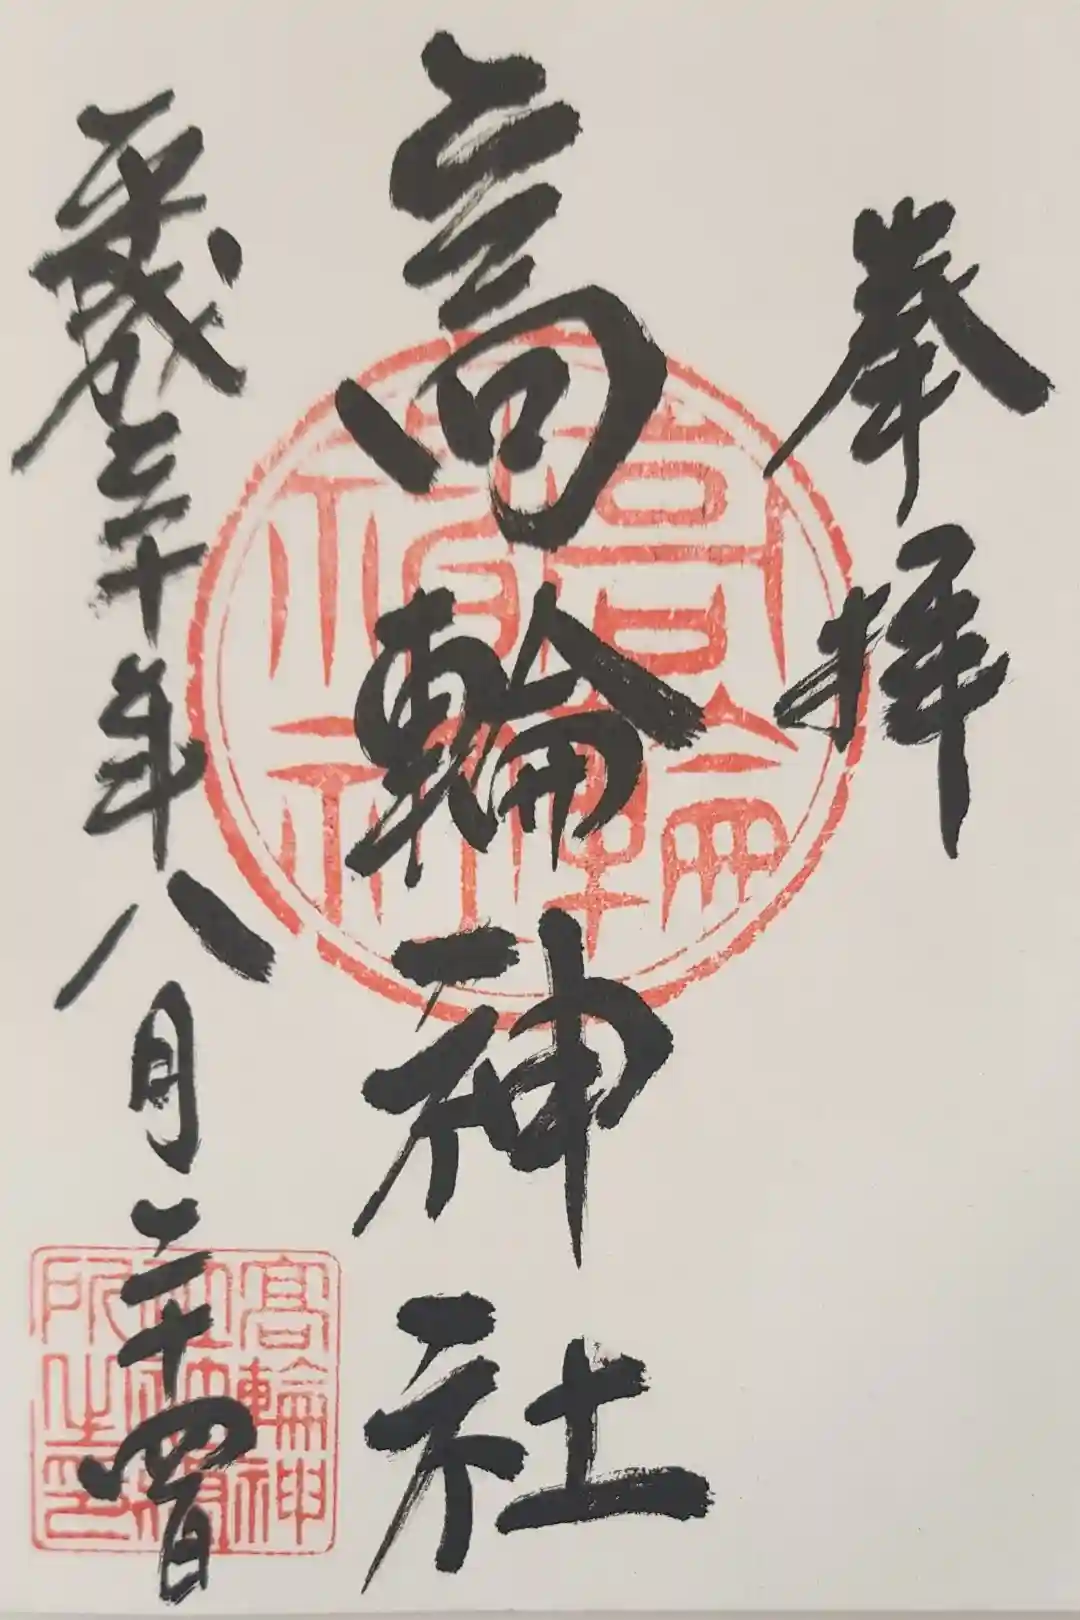 奉拝
高輪神社
平成三十年八月二十四日
高輪神
社社務
所之印